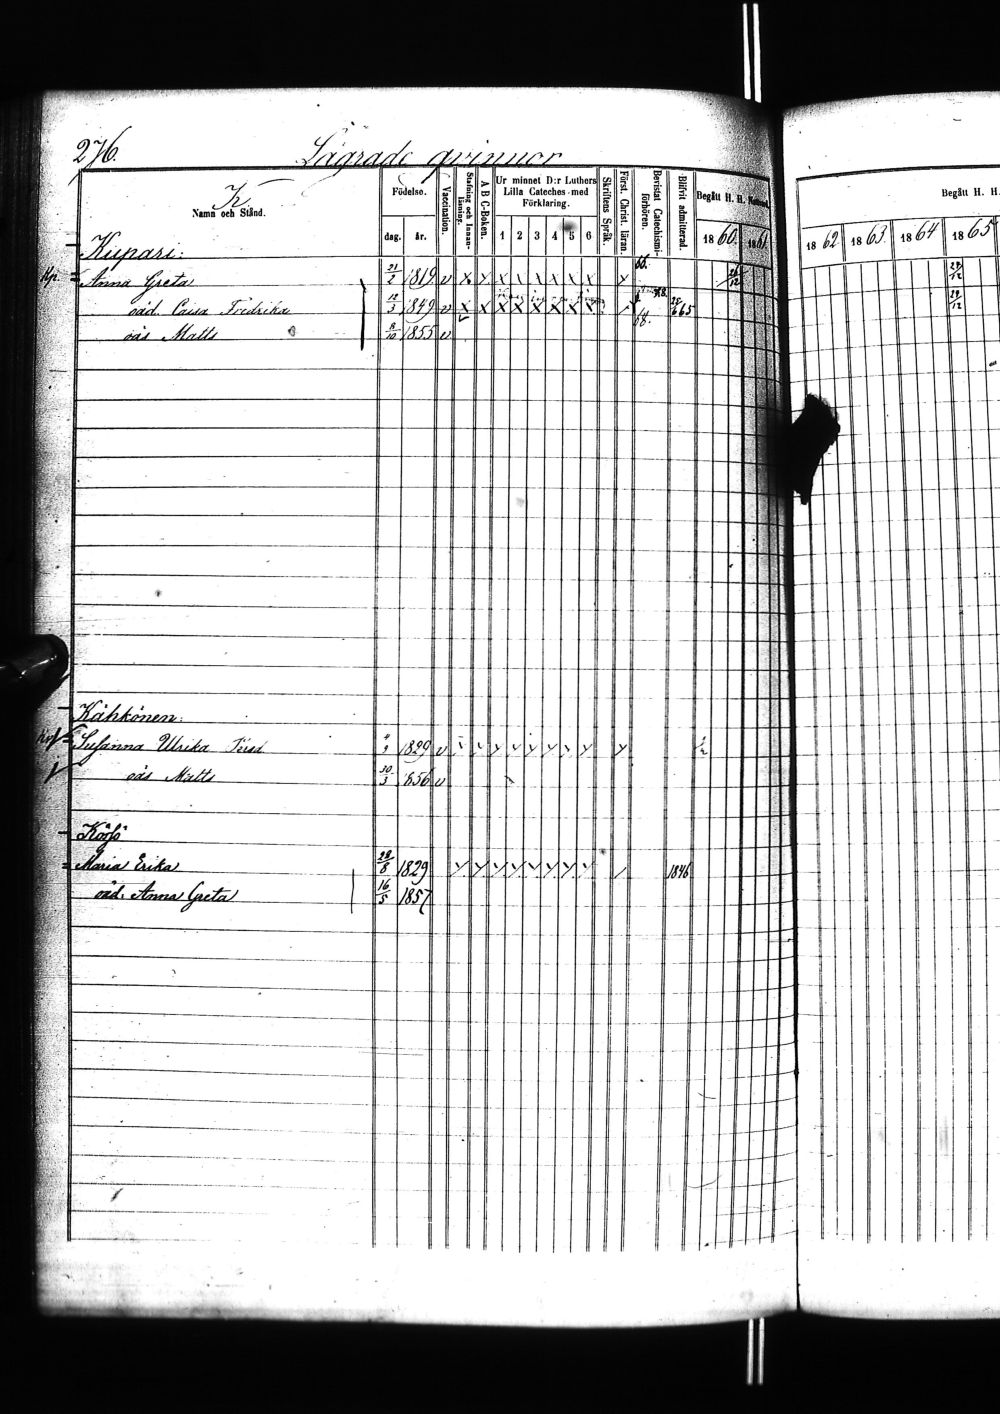 276.
Lägrade qvinnor
K
Namn och Stånd.
Födelse.
dag. år.
Vaccination.
Stafning och Innanläsning.
A B C-Boken.
Ur minnet D:r Luthers Lilla Cateches med Förklaring.
1 2 3 4 5 6
Skriftens Språk.
Först. Christ. läran
Bevistat Catechismiförhören.
Blifvit admitterad.
Begått H. H.
1860. 1861.
Begått H. H.
1862. 1863. 1864 1865
Kupari:
Anna Greta 21/2 1819 v x y x \ \ x x x y 66. 26/12 28/12
oäd. Caisa Fredrika 12/3 1849 v x x x x x x x x 68. 665 28/12
oäs Matts 8/10 1855 v
Kähkönen:
Susanna Ulrika 1829 v
oäs Matts 30/3 1856 v
Maria Erika 28/8 1829 y y y y y y y y / 1846
oäd. Anna Greta 16/5 1857